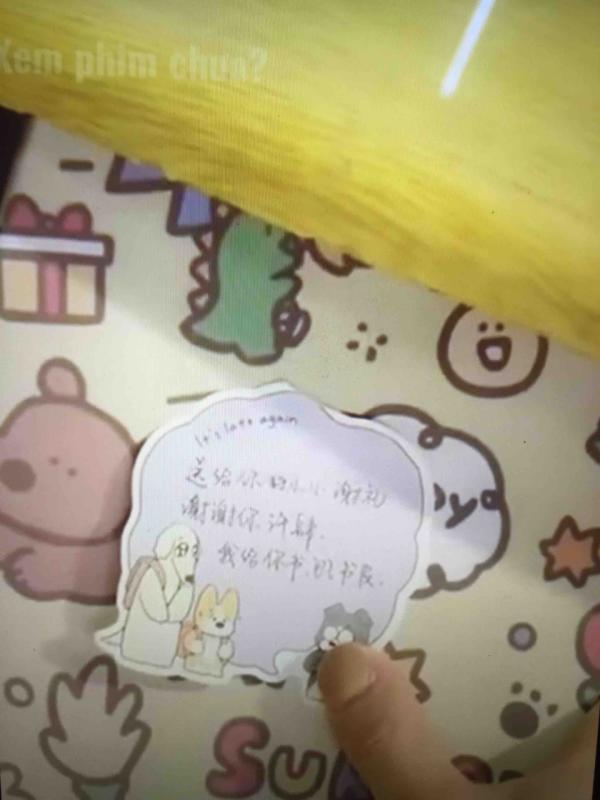 Xem phim chưa?
It's late again
送给你的小小谢礼
谢谢你许肆.
我给你书
Su